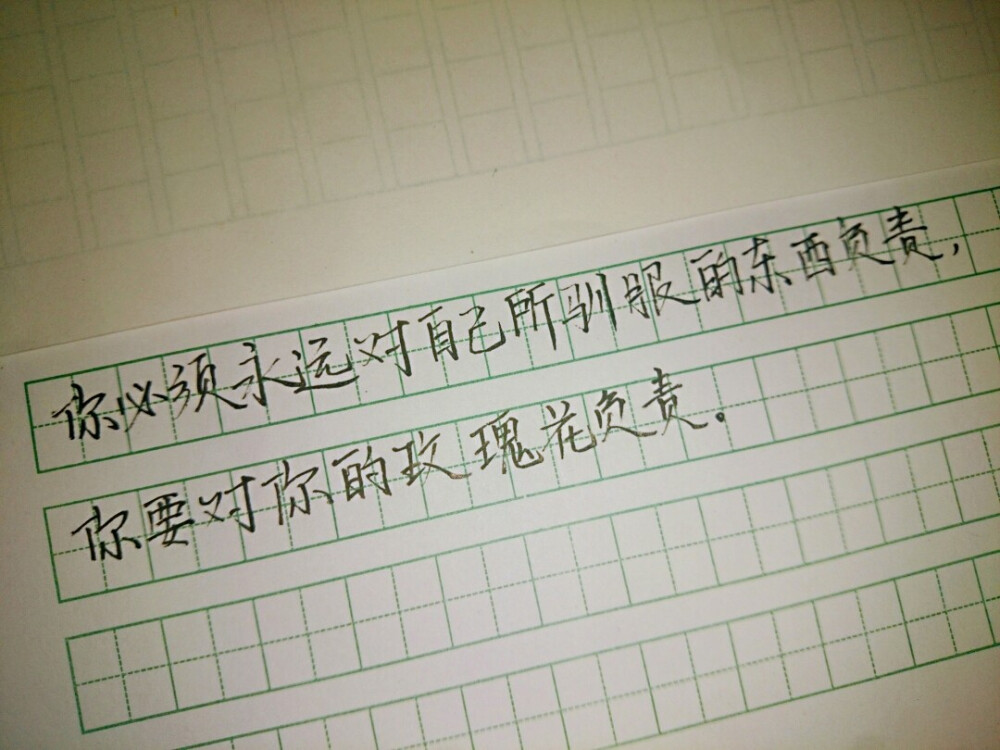 你必须永远对自己所驯服的东西负责，
你要对你的玫瑰花负责。